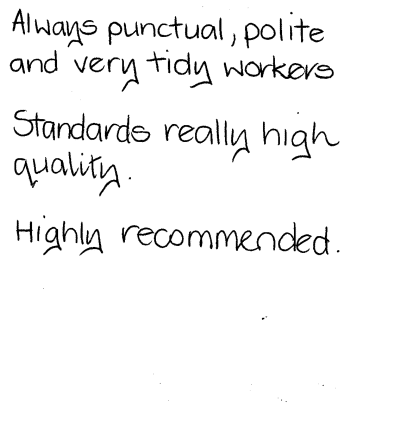 Always punctual, polite
and very tidy workers
Standards really high
quality.
Highly recommended.